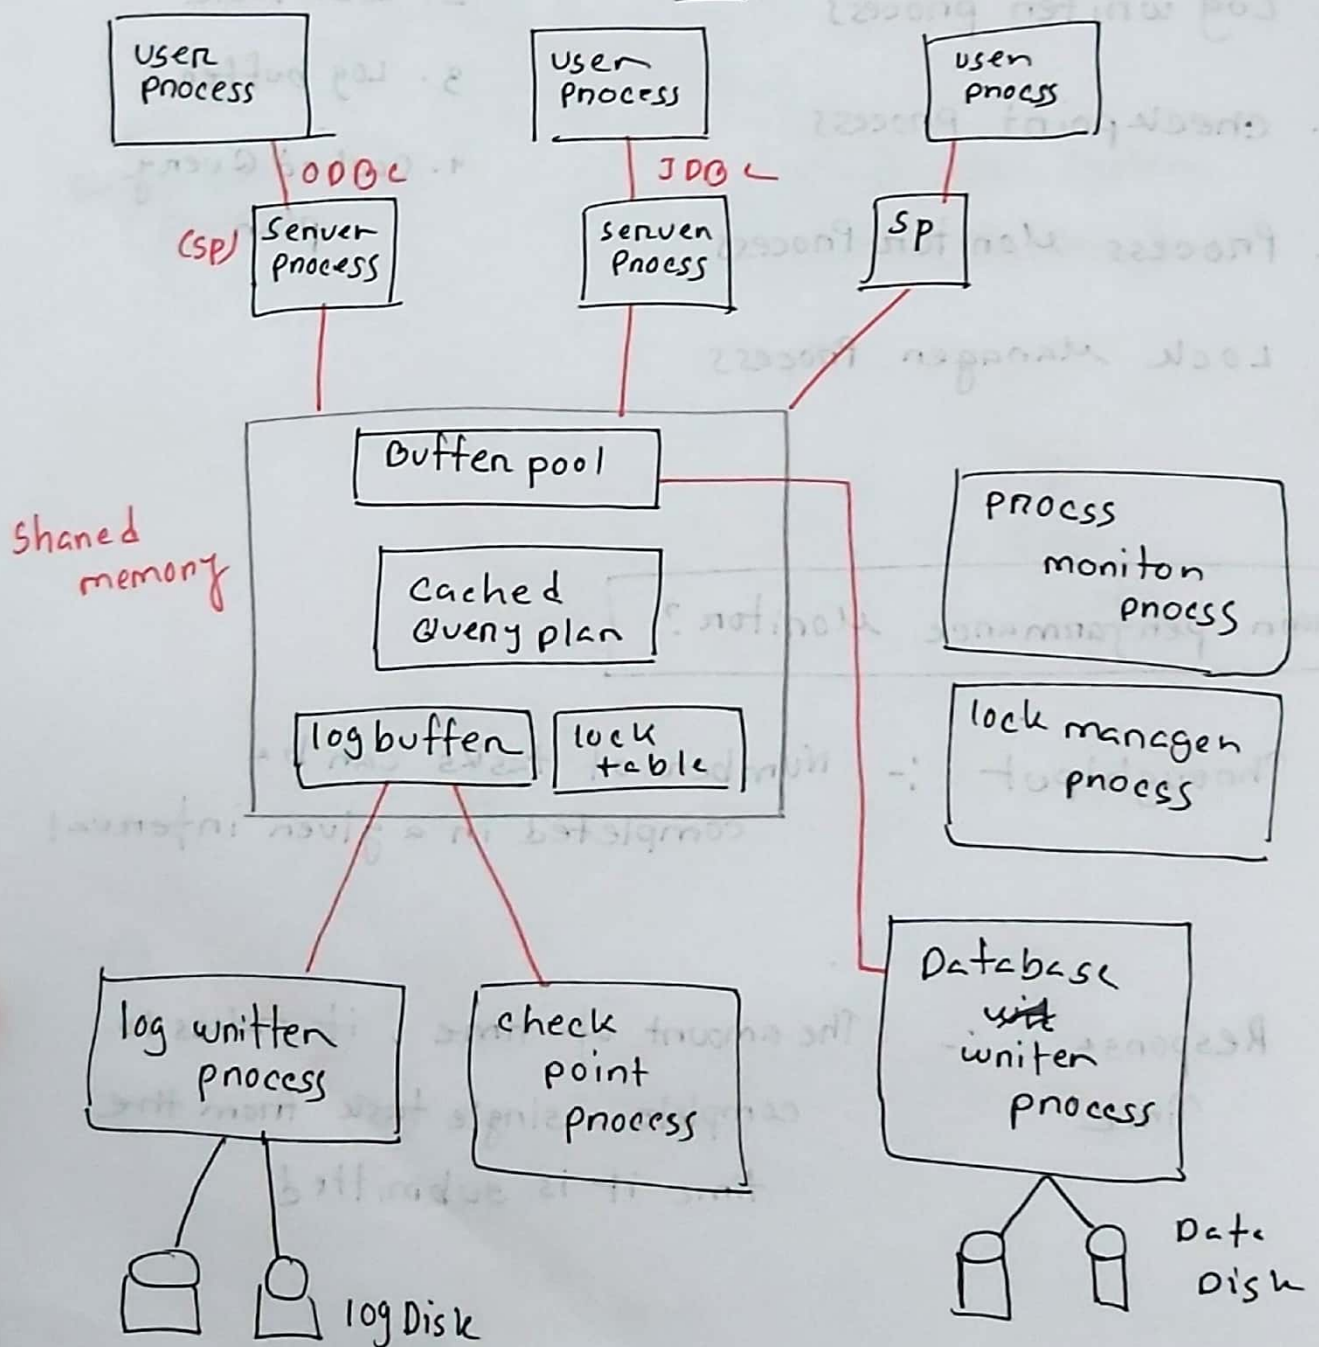 user
process
user
process
user
procss
ODBC
JDBC
(SP)
Server
process
server
Procss
SP
Buffer pool
Shared
memory
Cached
Query plan
log buffer
lock
table
procss
monitor
procss
lock manager
procss
log written
process
check
point
process
Database
writer
process
log Disk
Data
Disk